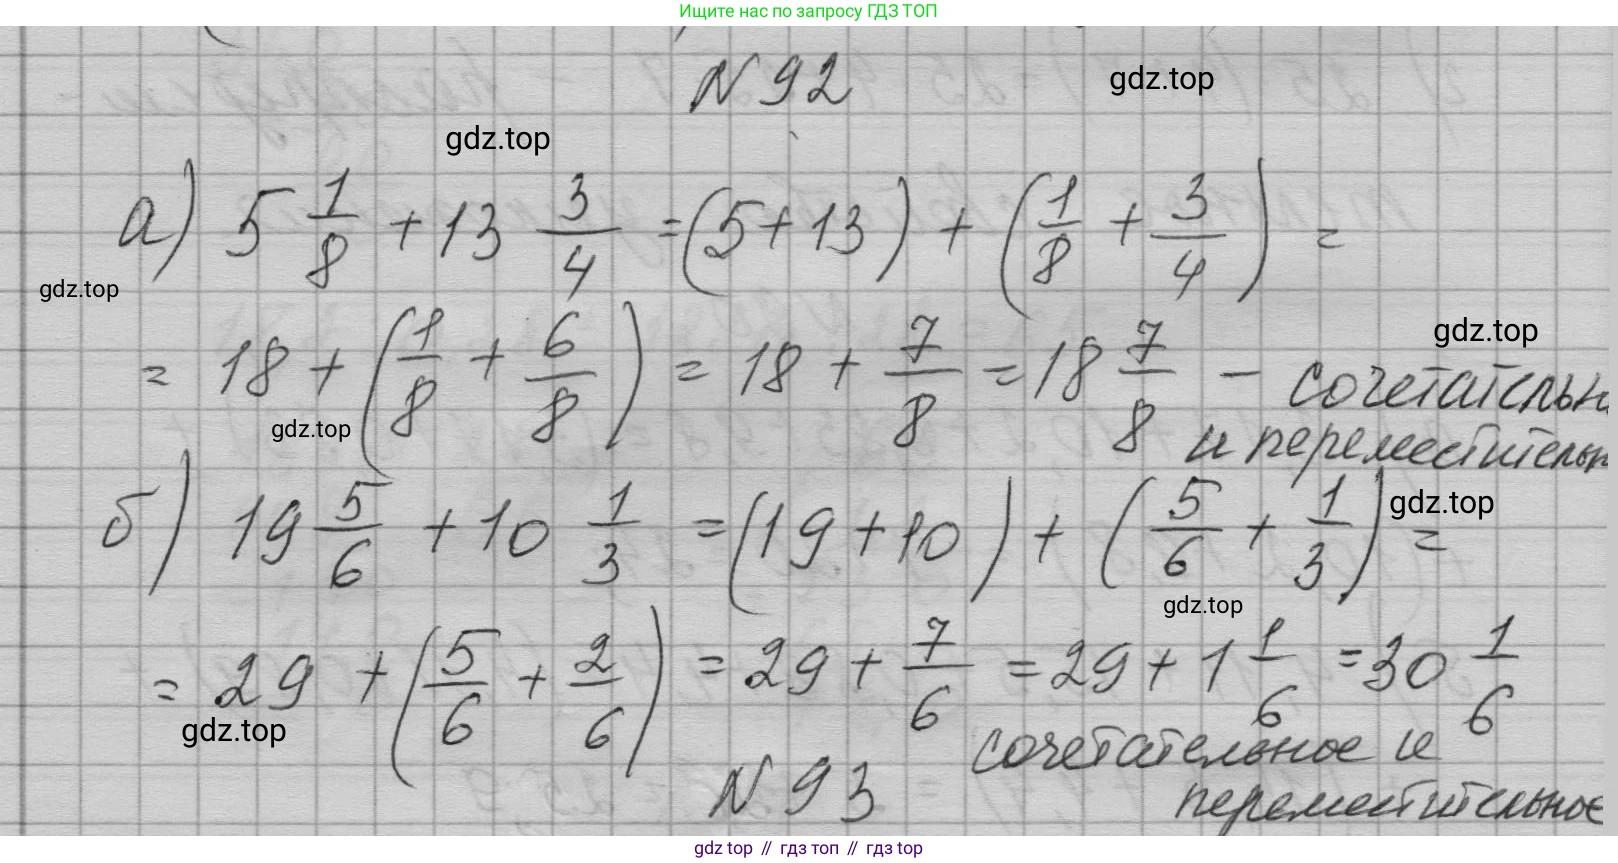 Ищите нас по запросу ГДЗ ТОП
N 92
gdz.top
gdz.top
а) 5 1/8 + 13 3/4 = (5+13) + (1/8 + 3/4) =
gdz.top
= 18 + (1/8 + 6/8) = 18 + 7/8 = 18 7/8 - сочетательн
gdz.top
gdz.top
и переместительн
б) 19 5/6 + 10 1/3 = (19+10) + (5/6 + 1/3) =
gdz.top
gdz.top
= 29 + (5/6 + 2/6) = 29 + 7/6 = 29 + 1 1/6 = 30 1/6
gdz.top
сочетательное и
N 93
переместительное
gdz top // гдз топ // гдз top